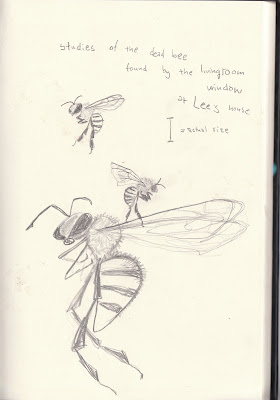 studies of the dead bee
found by the livingroom
window
at Lee's house
= actual size